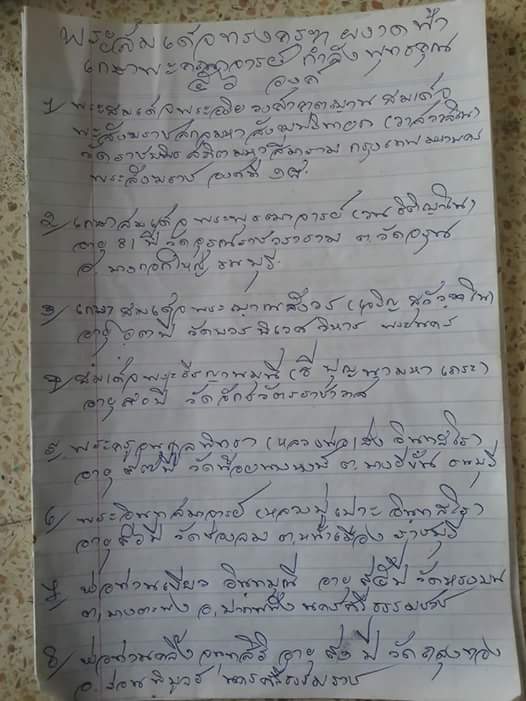 พระสมเด็จทรงครุฑ ผงาดฟ้า
เกษาพระคณาจารย์ กำลังพุทธคุณ
๕๖ องค์
1/ พระสมเด็จพระอริยวงศาคตญาณ สมเด็จ
พระสังฆราชสกลมหาสังฆปริณายก (วาสน์
วัดราชบพิธสถิตมหาสีมาราม กรุงเทพมหานคร
พระสังฆราช องค์ที่ ๑๘.
2/ เกษาสมเด็จ พระพุฒาจารย์ (วน
อายุ 81 ปี วัดอรุณราชวราราม ต.วัดอรุณ
อ.บางกอกใหญ่, ธนบุรี.
๓/ เกษา สมเด็จ พระญาณสังวร (เจริญ สุวฑฺฒโน)
อายุ ๖๓ ปี วัดบวรนิเวศวิหาร พระนคร
๔/ สมเด็จพระธีรญาณมุนี ( ปุณฺณ มหาเถระ)
อายุ ปี วัดจักรวรรดิราชาวาส
๕/ พระครู (หลวงพ่อเส่ง อินฺทสโร)
อายุ ปี วัดน้อยนางหงษ์ ต.บางยี่ขัน ธนบุรี
๖/ พระอินทสมาจารย์ (หลวงปู่เงาะ อินฺทสโร)
อายุ ปี วัดช่องลม ต.หน้าเมือง ราชบุรี
๗/ พ่อท่านเขียว อินฺทมุนี อายุ ปี วัดหรงบน
ต.บางตะพง อ.ปากพนัง นครศรีธรรมราช
8/ พ่อท่านคล้อย อายุ ปี วัด
อ.ร่อนพิบูลย์ นครศรีธรรมราช